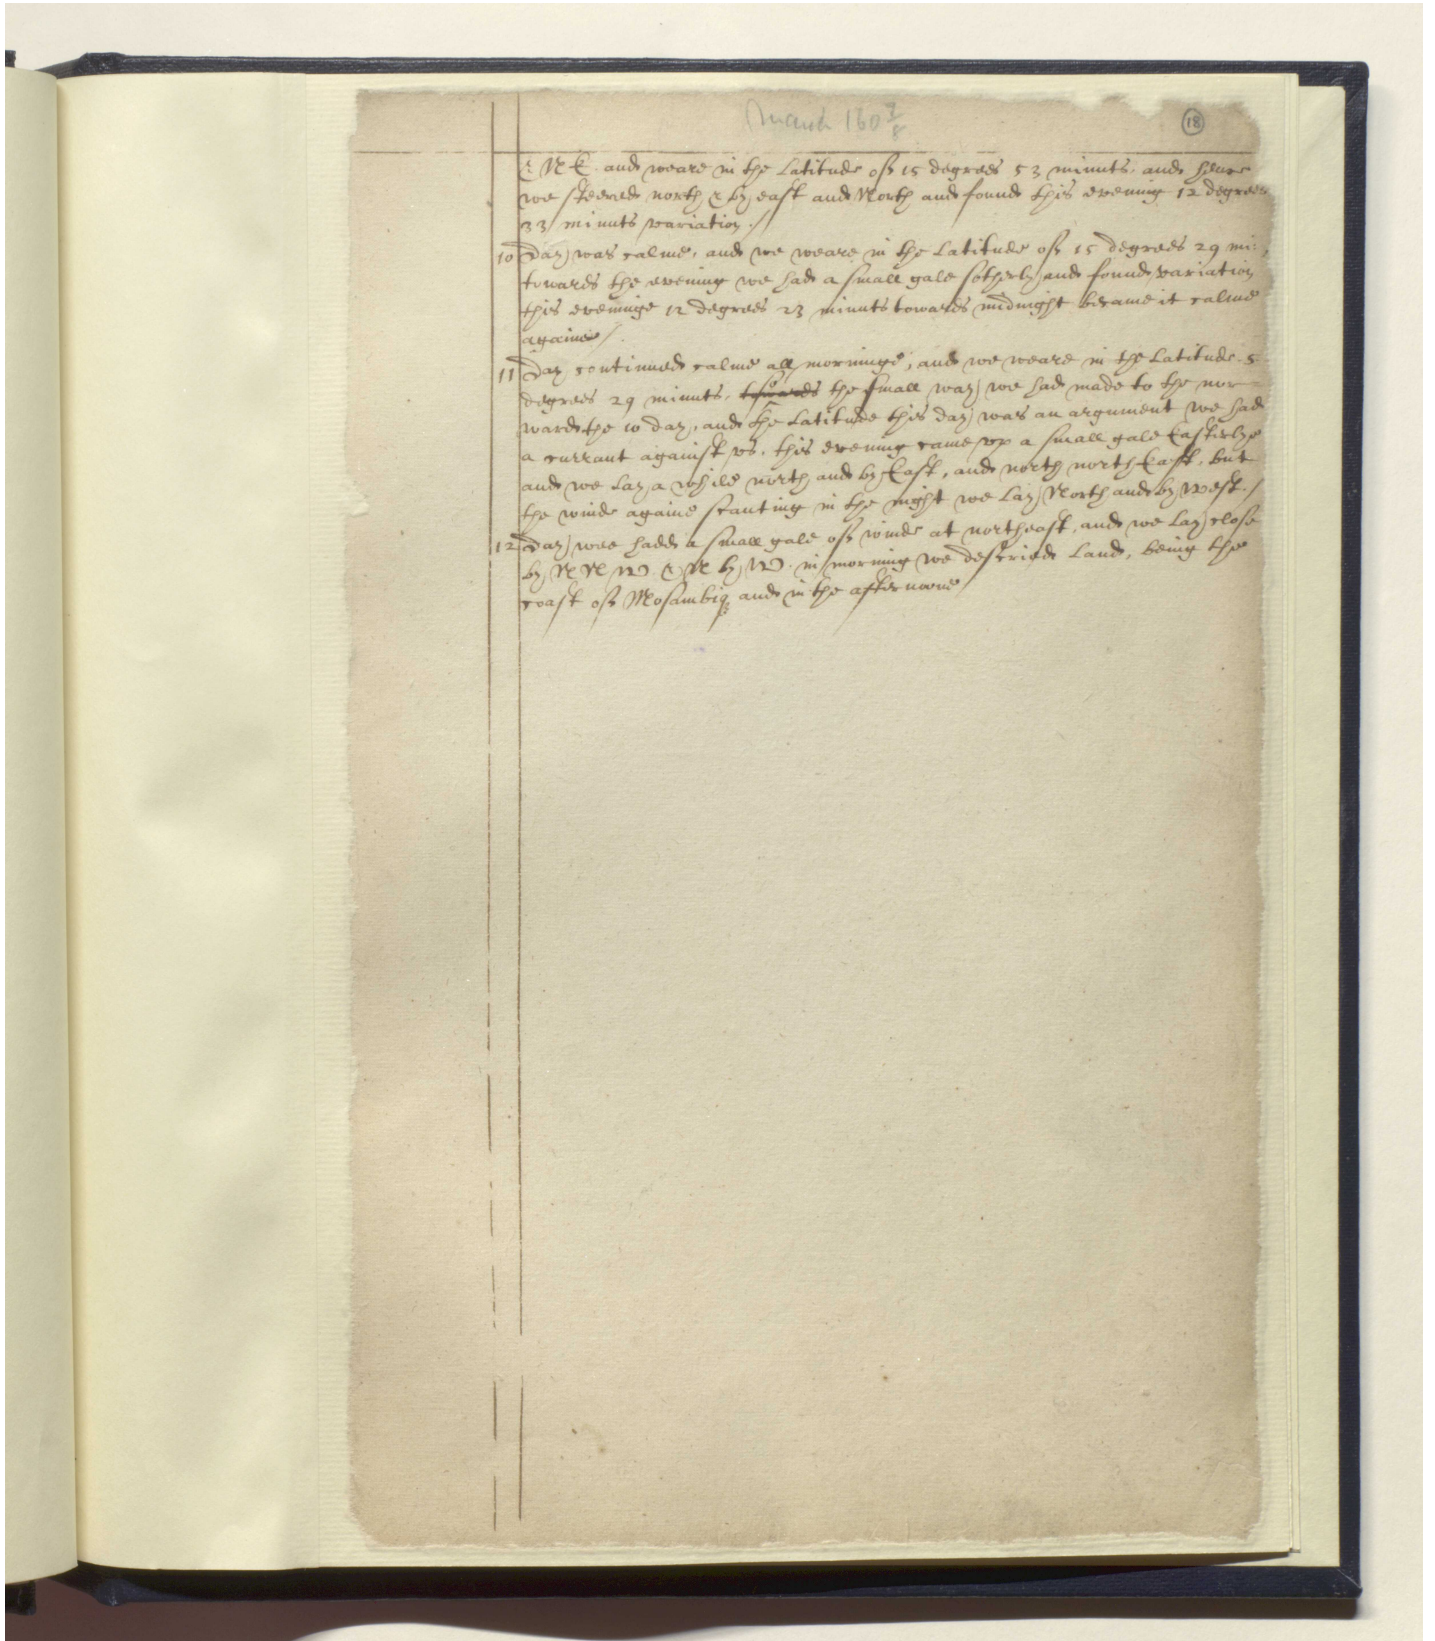 March 160 7/8
18
& N E. and weare in the Latitude off 15 degrees 53 minuts. and hence
we steered north & by east and North and found this evening 12 degrees
33 minuts variation./
10 Day was calme, and we weare in the Latitude off 15 degrees 29 mi:
towards the evening we had a small gale sotherly and found variation
this eveninge 12 degrees 23 minuts towards midnight became it calme
againe/.
11 Day continued calme all morninge, and we weare in the Latitude. 5
degrees 29 minuts, towards the small way we had made to the nor
ward the 10 day, and the Latitude this day was an argument we had
a currant against vs. this evening came vp a small gale Easterlye
and we Lay a while north and by East, and north north East, but
the winde againe scanting in the night we Lay North and by West./
12 Day wee hadd a small gale off winde at northeast, and we Lay close
by N N W. & N by W. in morning we descried Land, being the
coast off Mosambiq; and in the afternoone/